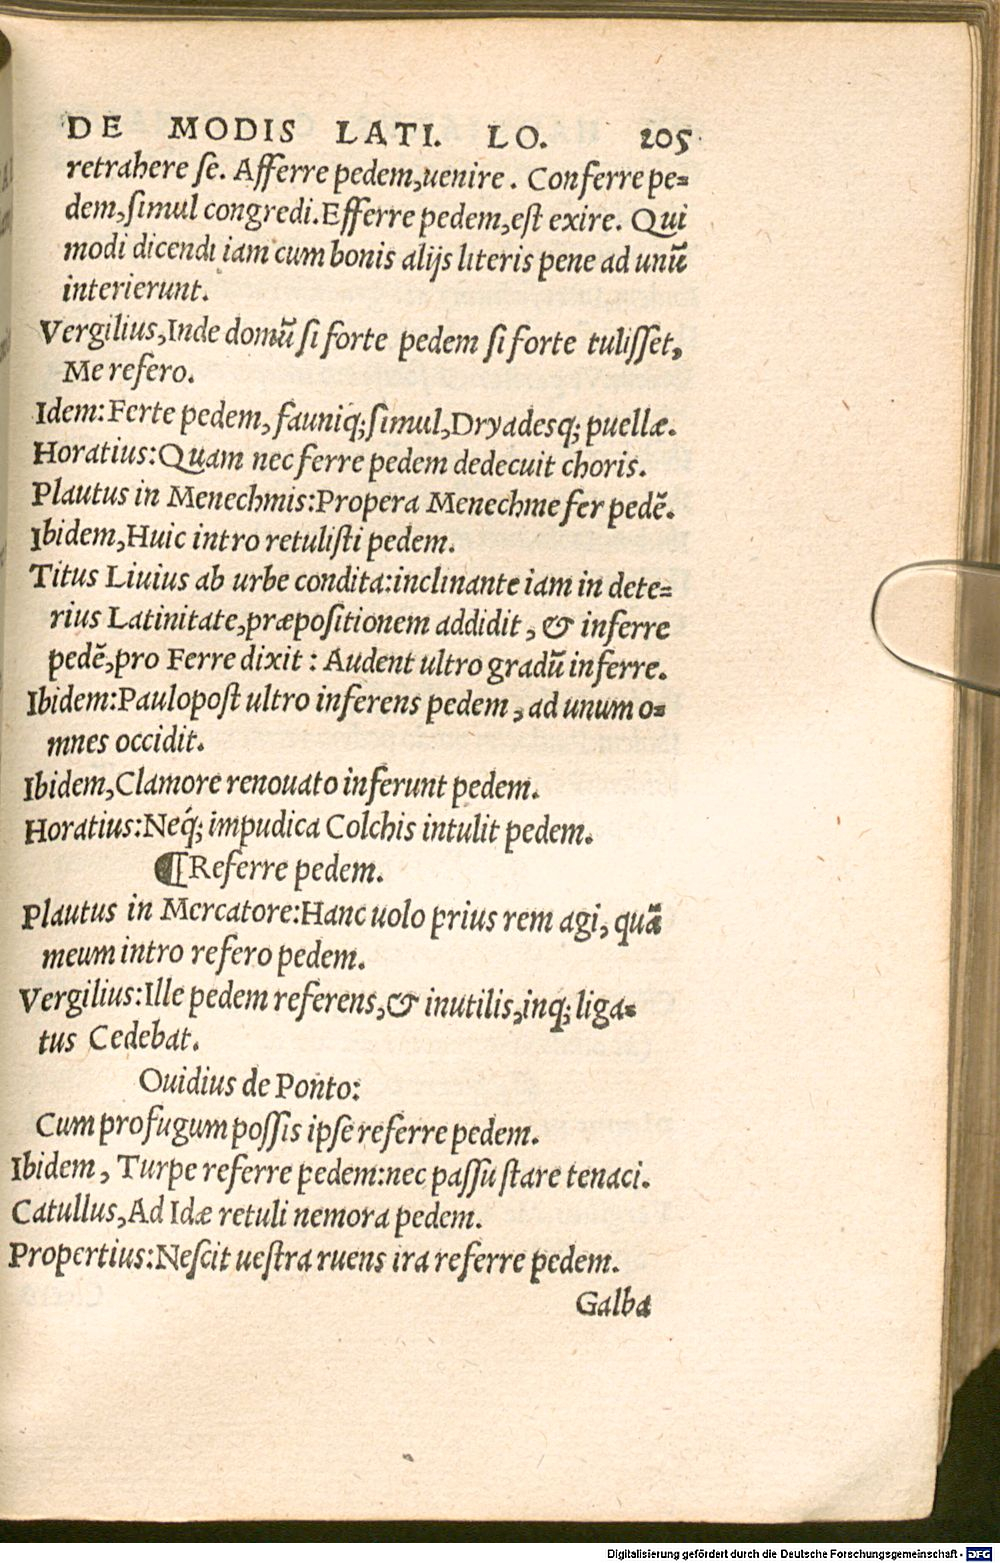 DE MODIS LATI. LO. 205
retrahere ſe. Afferre pedem,uenire. Conferre pe=
dem,ſimul congredi.Efferre pedem,eſt exire. Qui
modi dicendi iam cum bonis alijs literis pene ad unũ
interierunt.
Vergilius,Inde domũ ſi forte pedem ſi forte tuliſſet,
Me refero.
Idem:Ferte pedem, fauniq́;ſimul,Dryadesq; puellæ.
Horatius:Quam nec ferre pedem dedecuit choris.
Plautus in Menechmis:Propera Menechme fer pedẽ.
Ibidem,Huic intro retuliſti pedem.
Titus Liuius ab urbe condita:inclinante iam in dete=
rius Latinitate,præpoſitionem addidit, & inferre
pedẽ,pro Ferre dixit: Audent ultro gradũ inferre.
Ibidem:Paulopoſt ultro inferens pedem, ad unum o=
mnes occidit.
Ibidem,Clamore renouato inferunt pedem.
Horatius:Neq́; impudica Colchis intulit pedem.
¶Referre pedem.
Plautus in Mercatore:Hanc uolo prius rem agi, quã
meum intro refero pedem.
Vergilius:Ille pedem referens,& inutilis,inq; liga=
tus Cedebat.
Ouidius de Ponto:
Cum profugum poſſis ipſe referre pedem.
Ibidem, Turpe referre pedem:nec paſſu ſtare tenaci.
Catullus,Ad Idæ retuli nemora pedem.
Propertius:Neſcit ueſtra ruens ira referre pedem.
Galba
Digitalisierung gefördert durch die Deutsche Forschungsgemeinschaft - DFG